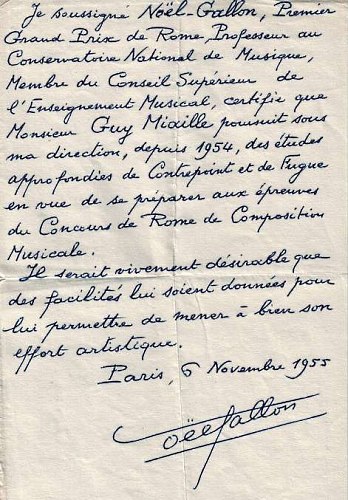 Je soussigné Noël-Gallon, Premier
Grand Prix de Rome, Professeur au
Conservatoire National de Musique,
Membre du Conseil Supérieur de
l'Enseignement Musical, certifie que
Monsieur Guy Miaille poursuit sous
ma direction, depuis 1954, des études
approfondies de Contrepoint et de Fugue
en vue de se préparer aux épreuves
du Concours de Rome de Composition
Musicale.
Il serait vivement désirable que
des facilités lui soient données pour
lui permettre de mener à bien son
effort artistique.
Paris, 6 Novembre 1955
Noël Gallon